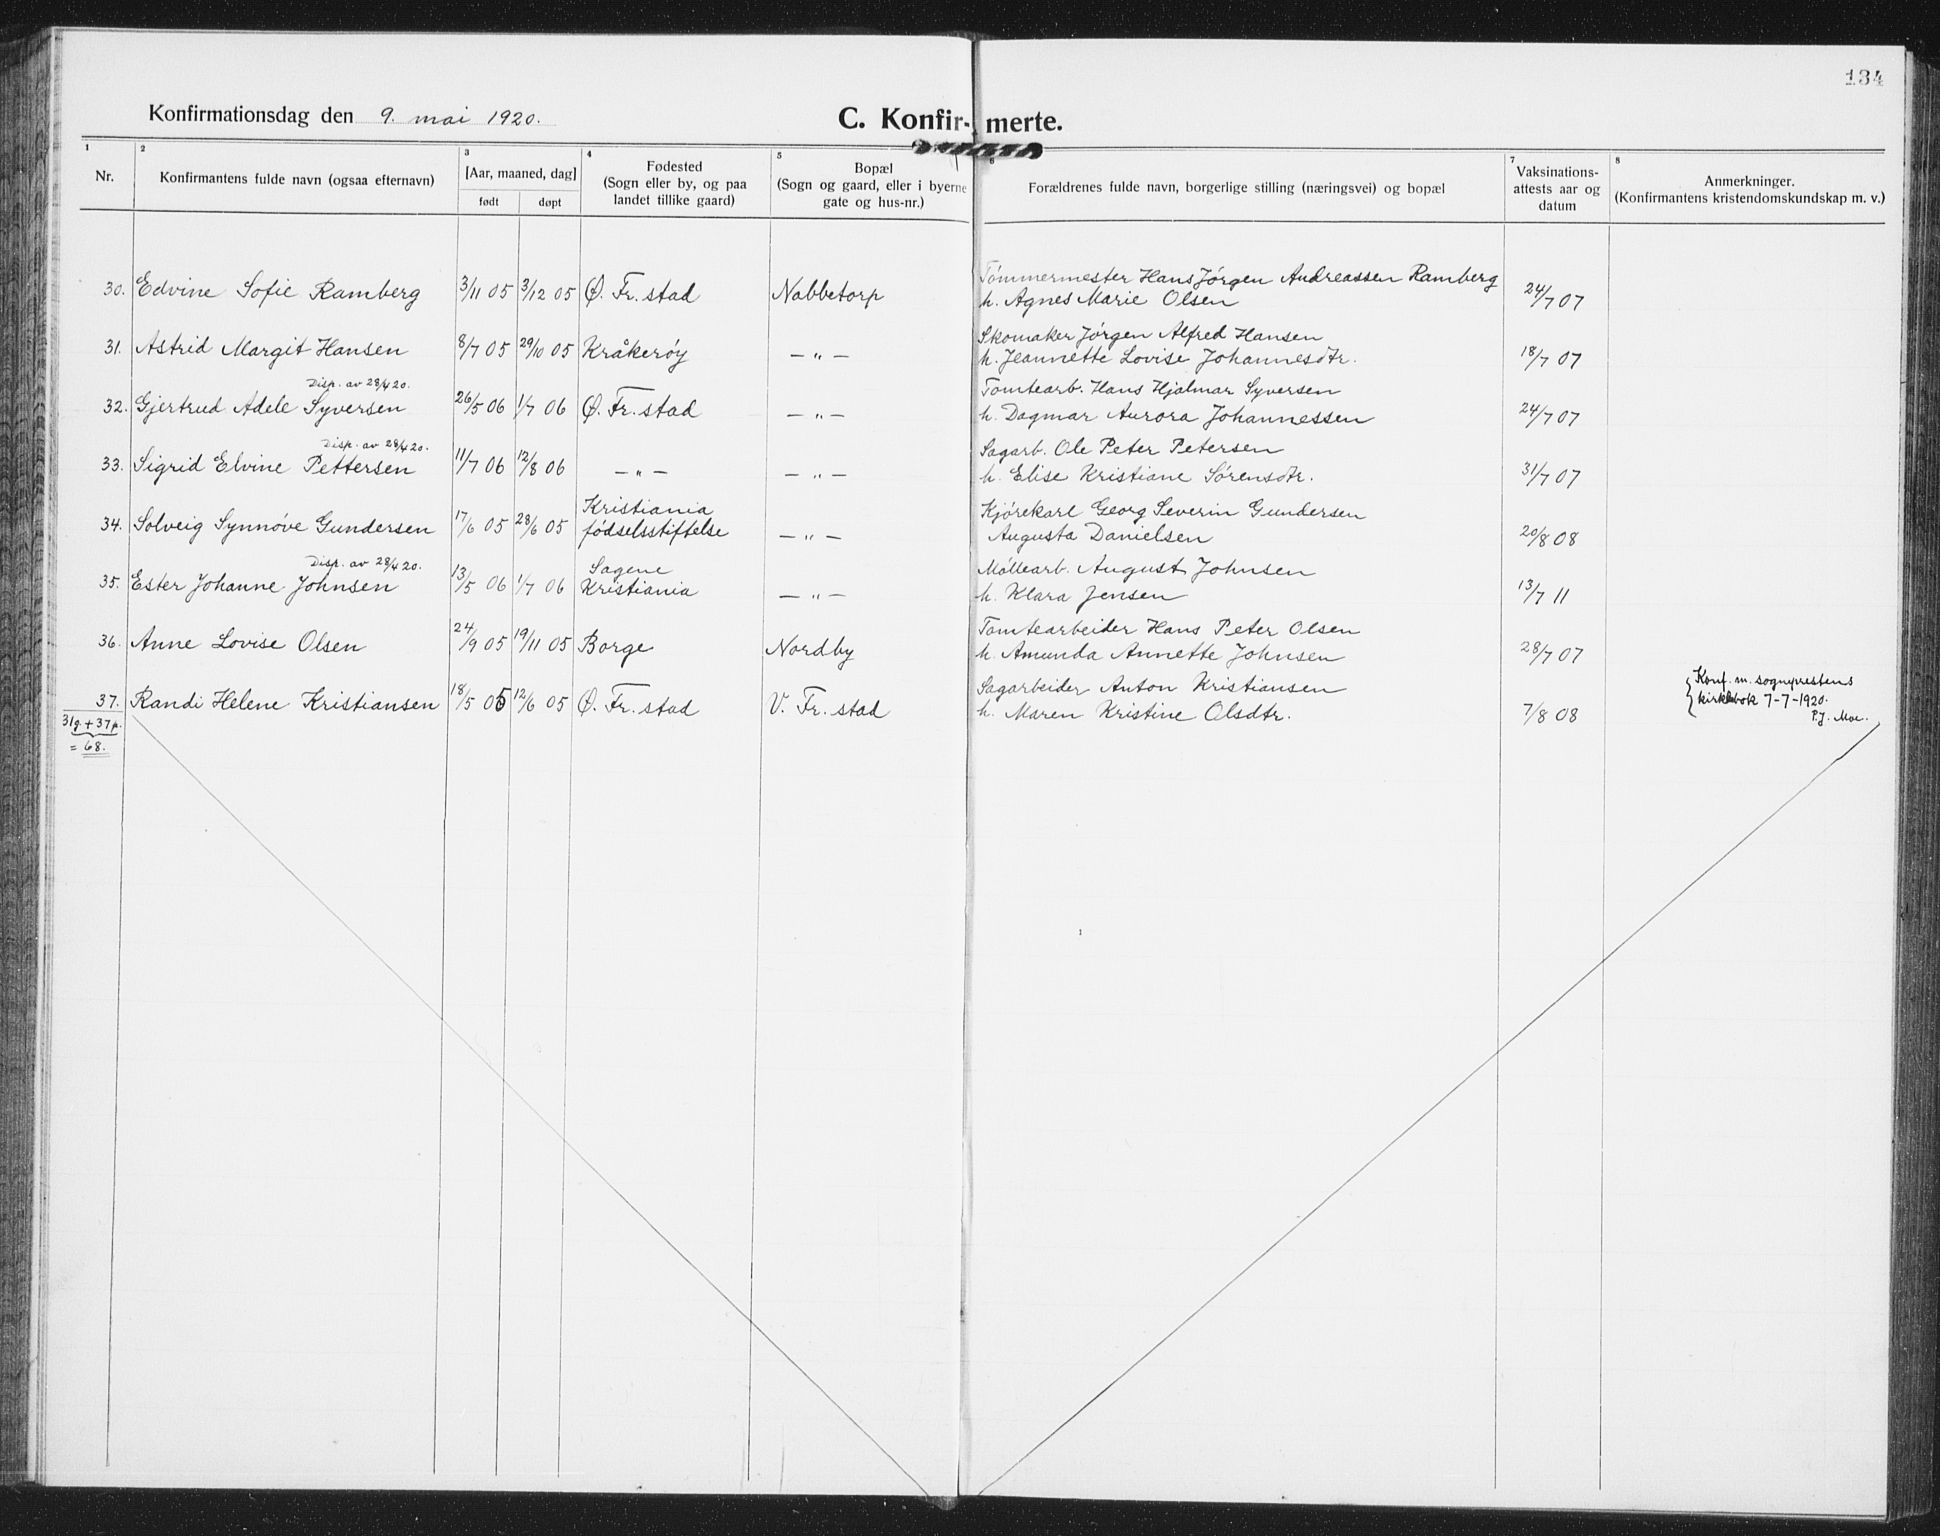 134
Konfirmationsdag den 9. mai 1920.
C. Konfir- merte.
1 2 3 4 5 6 7 8
Nr.
Konfirmantens fulde navn (ogsaa efternavn)
[Aar, maaned, dag]
født døpt
Fødested
(Sogn eller by, og paa
landet tillike gaard)
Bopæl
(Sogn og gaard, eller i byerne
gate og hus-nr.)
Forældrenes fulde navn, borgerlige stilling (næringsvei) og bopæl
Vaksinations-
attests aar og
datum
Anmerkninger.
(Konfirmantens kristendomskundskap m. v.)
Tømmermester Hans Jørgen Andreassen Ramberg
30. Edvine Sofie Ramberg 3/11 05 3/12 05 Ø. Fr. stad Nabbetorp h. Agnes Marie Olsen 24/7 07
Skomaker Jørgen Alfred Hansen
31. Astrid Margit Hansen 8/7 05 29/10 05 Kråkerøy — „ — h. Jeannette Lovise Johannesdtr. 18/7 07
Disp. av 28/4 20. Tomtearb. Hans Hjalmar Syversen
32. Gjertrud Adele Syversen 26/5 06 1/7 06 Ø. Fr. stad — „ — h. Dagmar Aurora Johannessen 24/7 07
Disp. av 28/4 20. Sagarb. Ole Peter Petersen
33. Sigrid Elvine Pettersen 11/7 06 12/8 06 — „ — — „ — h. Elise Kristiane Sørensdtr. 31/7 07
Kristiania Kjørekarl Georg Severin Gundersen
34. Solveig Synnøve Gundersen 17/6 05 28/6 05 fødselsstiftelse — „ — Augusta Danielsen 20/8 08
Disp. av 28/4 20. Sagene Møllearb. August Johnsen
35. Ester Johanne Johnsen 13/5 06 1/7 06 Kristiania — „ — h. Klara Jensen 13/7 11
Tomtearbeider Hans Peter Olsen
36. Anne Lovise Olsen 24/9 05 19/11 05 Borge Nordby h. Amunda Annette Johnsen 28/7 07
Sagarbeider Anton Kristiansen
37. Randi Helene Kristiansen 18/5 05 12/6 05 Ø. Fr. stad V. Fr. stad h. Maren Kristine Olsdtr. 7/8 08
Konf. m. sogneprestens
kirkebok 7-7-1920.
P.J. Moe.
31 g. + 37 p.
= 68.